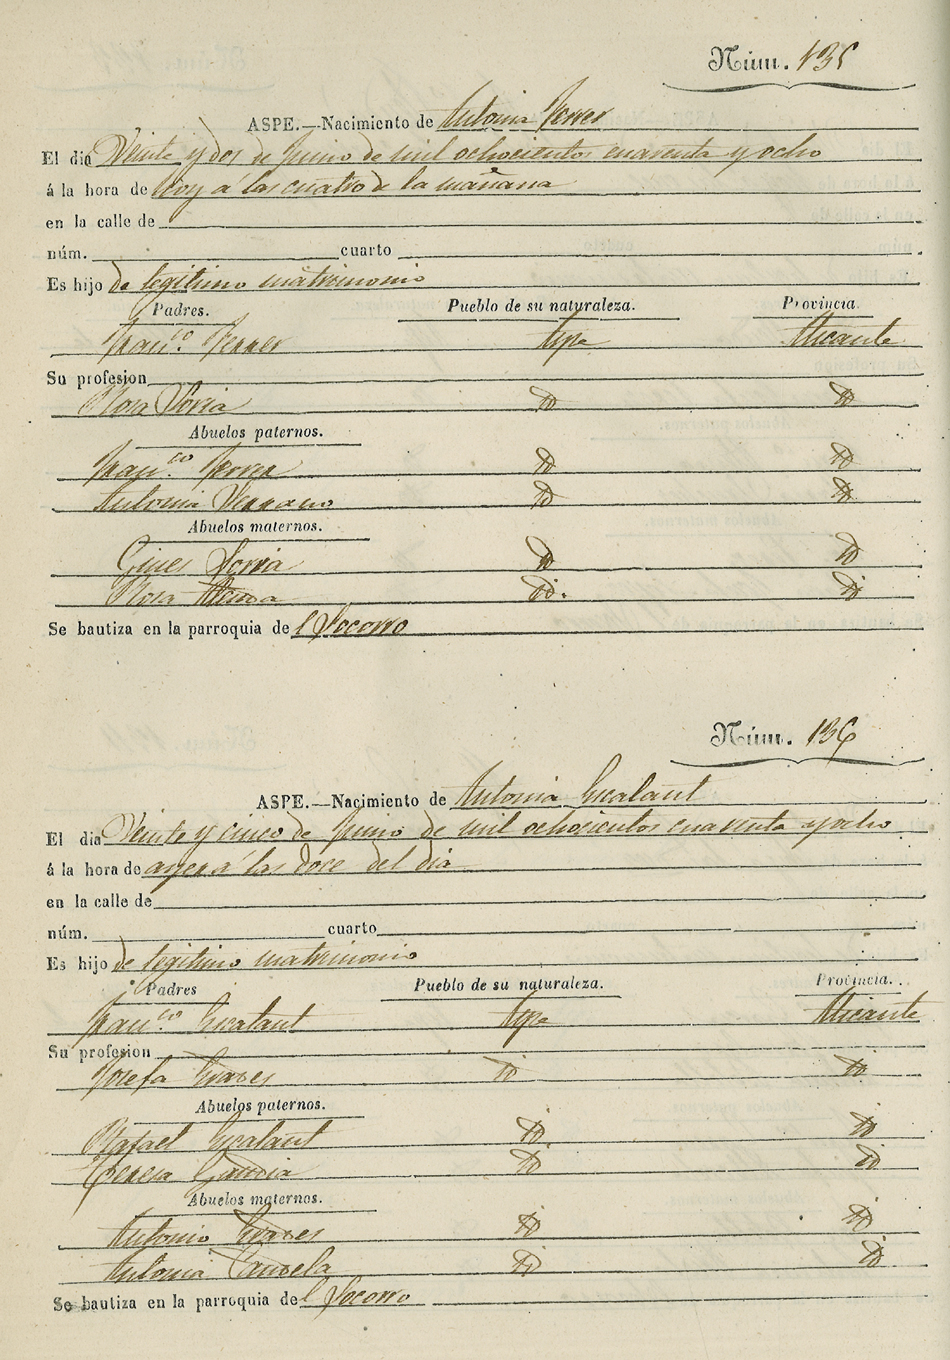 Núm. 135
ASPE.—Nacimiento de Antonia Ferrer
El dia Veinte y dos de Junio de mil ochocientos cuarenta y ocho
á la hora de hoy á las cuatro de la mañana
en la calle de
núm. cuarto
Es hijo de legitimo matrimonio
Padres. Pueblo de su naturaleza. Provincia.
Fran.co Ferrer Aspe Alicante
Su profesion
Rosa Soria Id Id
Abuelos paternos.
Fran.co Ferrer Id Id
Antonia Serrano Id Id
Abuelos maternos.
Gines Soria Id Id
Rosa Id. Id
Se bautiza en la parroquia del Socorro
Núm. 136
ASPE.—Nacimiento de Antonia Escalant
El dia Veinte y cinco de Junio de mil ochocientos cuarenta y ocho
á la hora de ayer á las doce del dia
en la calle de
núm. cuarto
Es hijo de legitimo matrimonio
Padres Pueblo de su naturaleza. Provincia.
Fran.co Escalant Aspe Alicante
Su profesion
Josefa Id Id
Abuelos paternos.
Rafael Escalant Id Id
Teresa Id Id
Abuelos maternos.
Antonio Id Id
Antonia Candela Id Id
Se bautiza en la parroquia del Socorro